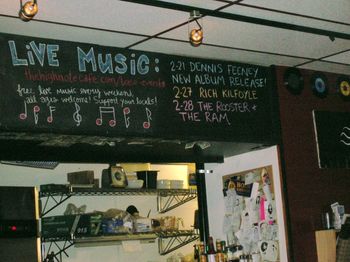 LiVE MUSiC:
thehighnotecafe.com/local-events
free, live music every weekend,
all ages welcome! Support your locals!
2-21 DENNIS FEENEY
NEW ALBUM RELEASE!
2-27 RICH KILFOYLE
2-28 THE ROOSTER +
THE RAM